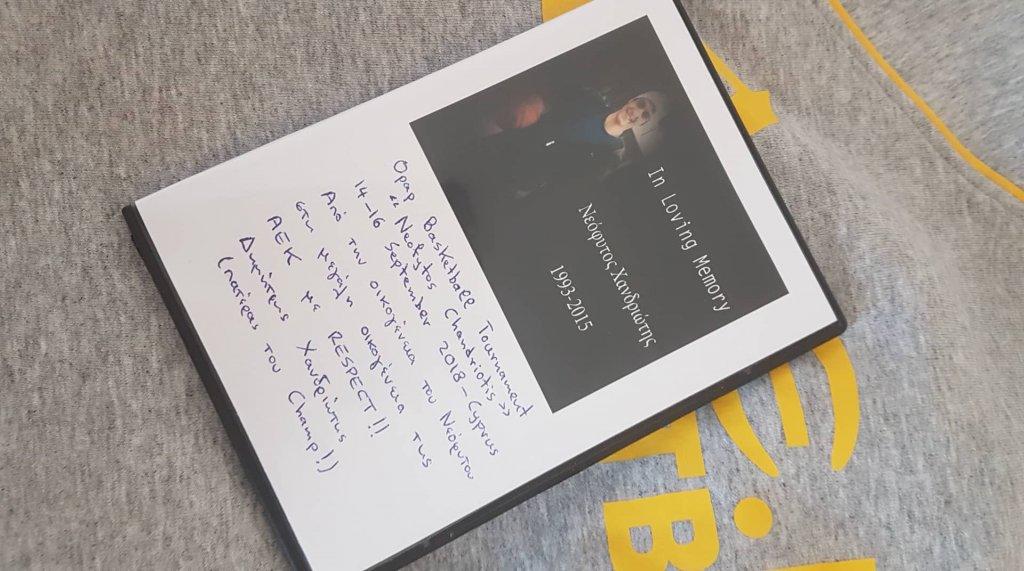 In Loving Memory
Νεόφυτος Χανδριώτης
1993-2015
Opap Basketball Tournament
« Neofytos Chandriotis »
14-16 September 2018 - Cyprus
Από την οικογένεια του Νεόφυτου
στη μεγάλη οικογένεια της
ΑΕΚ με RESPECT!!
Δημήτρης Χανδριώτης
(πατέρας του Champ!)